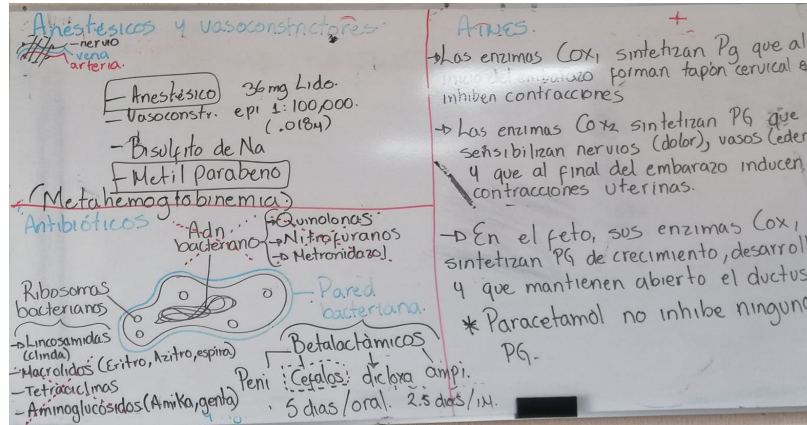 Anestésicos y vasoconstrictores.
nervio
vena
arteria.
- Anestésico 36 mg Lido.
- Vasoconstr. epi 1:100,000.
(.018
- Bisulfito de Na
- Metil Parabeno
(Metahemoglobinemia.)
Antibióticos
Adn
bacteriano
→ Quinolonas
→ Nitrofuranos
→ Metronidazol
Ribosomas
bacterianos
→ Lincosamidas
(clinda)
- Macrolidos (Eritro, Azitro, espira)
- Tetraciclinas
- Aminoglucósidos (Amika, genta)
Pared
bacteriana.
Betalactámicos
Peni Cefalos dicloxa ampi.
5 dias/oral. 2.5 dias/IM.
AINES.
→ Las enzimas Cox1 sintetizan Pg que al
forman tapón cervical e
inhiben contracciones
→ Las enzimas Cox2 sintetizan PG que
sensibilizan nervios (dolor), vasos (eder
y que al final del embarazo inducen
contracciones uterinas.
→ En el feto, sus enzimas Cox,
sintetizan PG de crecimiento, desarroll
y que mantienen abierto el ductus
* Paracetamol no inhibe ninguna
PG.